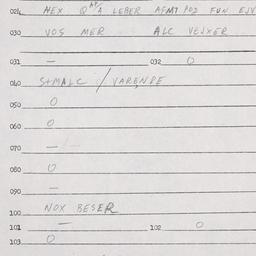 024 HEX LEBER FUN EJV
030 VOS MER ALC VEJXER
031 — 032 O
040 S+MALC / VARENDE
050 O
060 O
070 —
080 O
090 —
100 NOX BESER
101 — 102 O
103 O